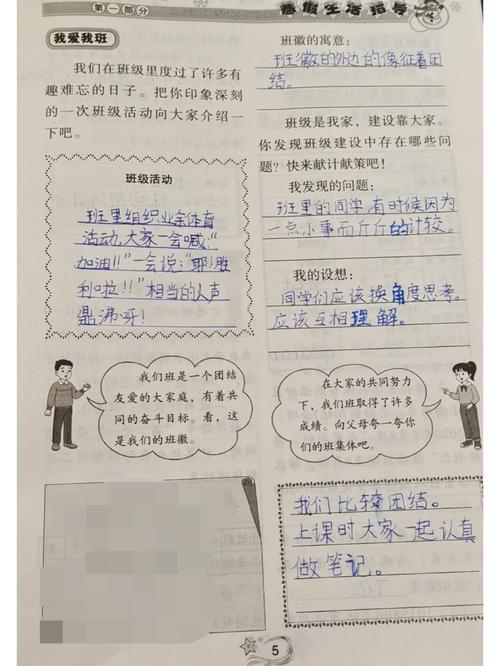 第一部分
寒假生活指导
我爱我班
我们在班级里度过了许多有
趣难忘的日子。把你印象深刻
的一次班级活动向大家介绍一
下吧。
班级活动
班里组织业余体育
活动,大家一会喊:“
加油!!”一会说:“耶!胜
利啦!!”相当的人声
鼎沸呀!
我们班是一个团结
友爱的大家庭,有着共
同的奋斗目标。看,这
是我们的班徽。
班徽的寓意:
班徽的外边的像征着团
结。
班级是我家,建设靠大家。
你发现班级建设中存在哪些问
题?快来献计献策吧!
我发现的问题:
班里的同学,有时候因为
一点小事而斤斤的计较。
我的设想:
同学们应该换角度思考。
应该互相理解。
在大家的共同努力
下,我们班取得了许多
成绩。向父母夸一夸你
们的班集体吧。
我们比较团结。
上课时大家一起认真
做笔记。
5